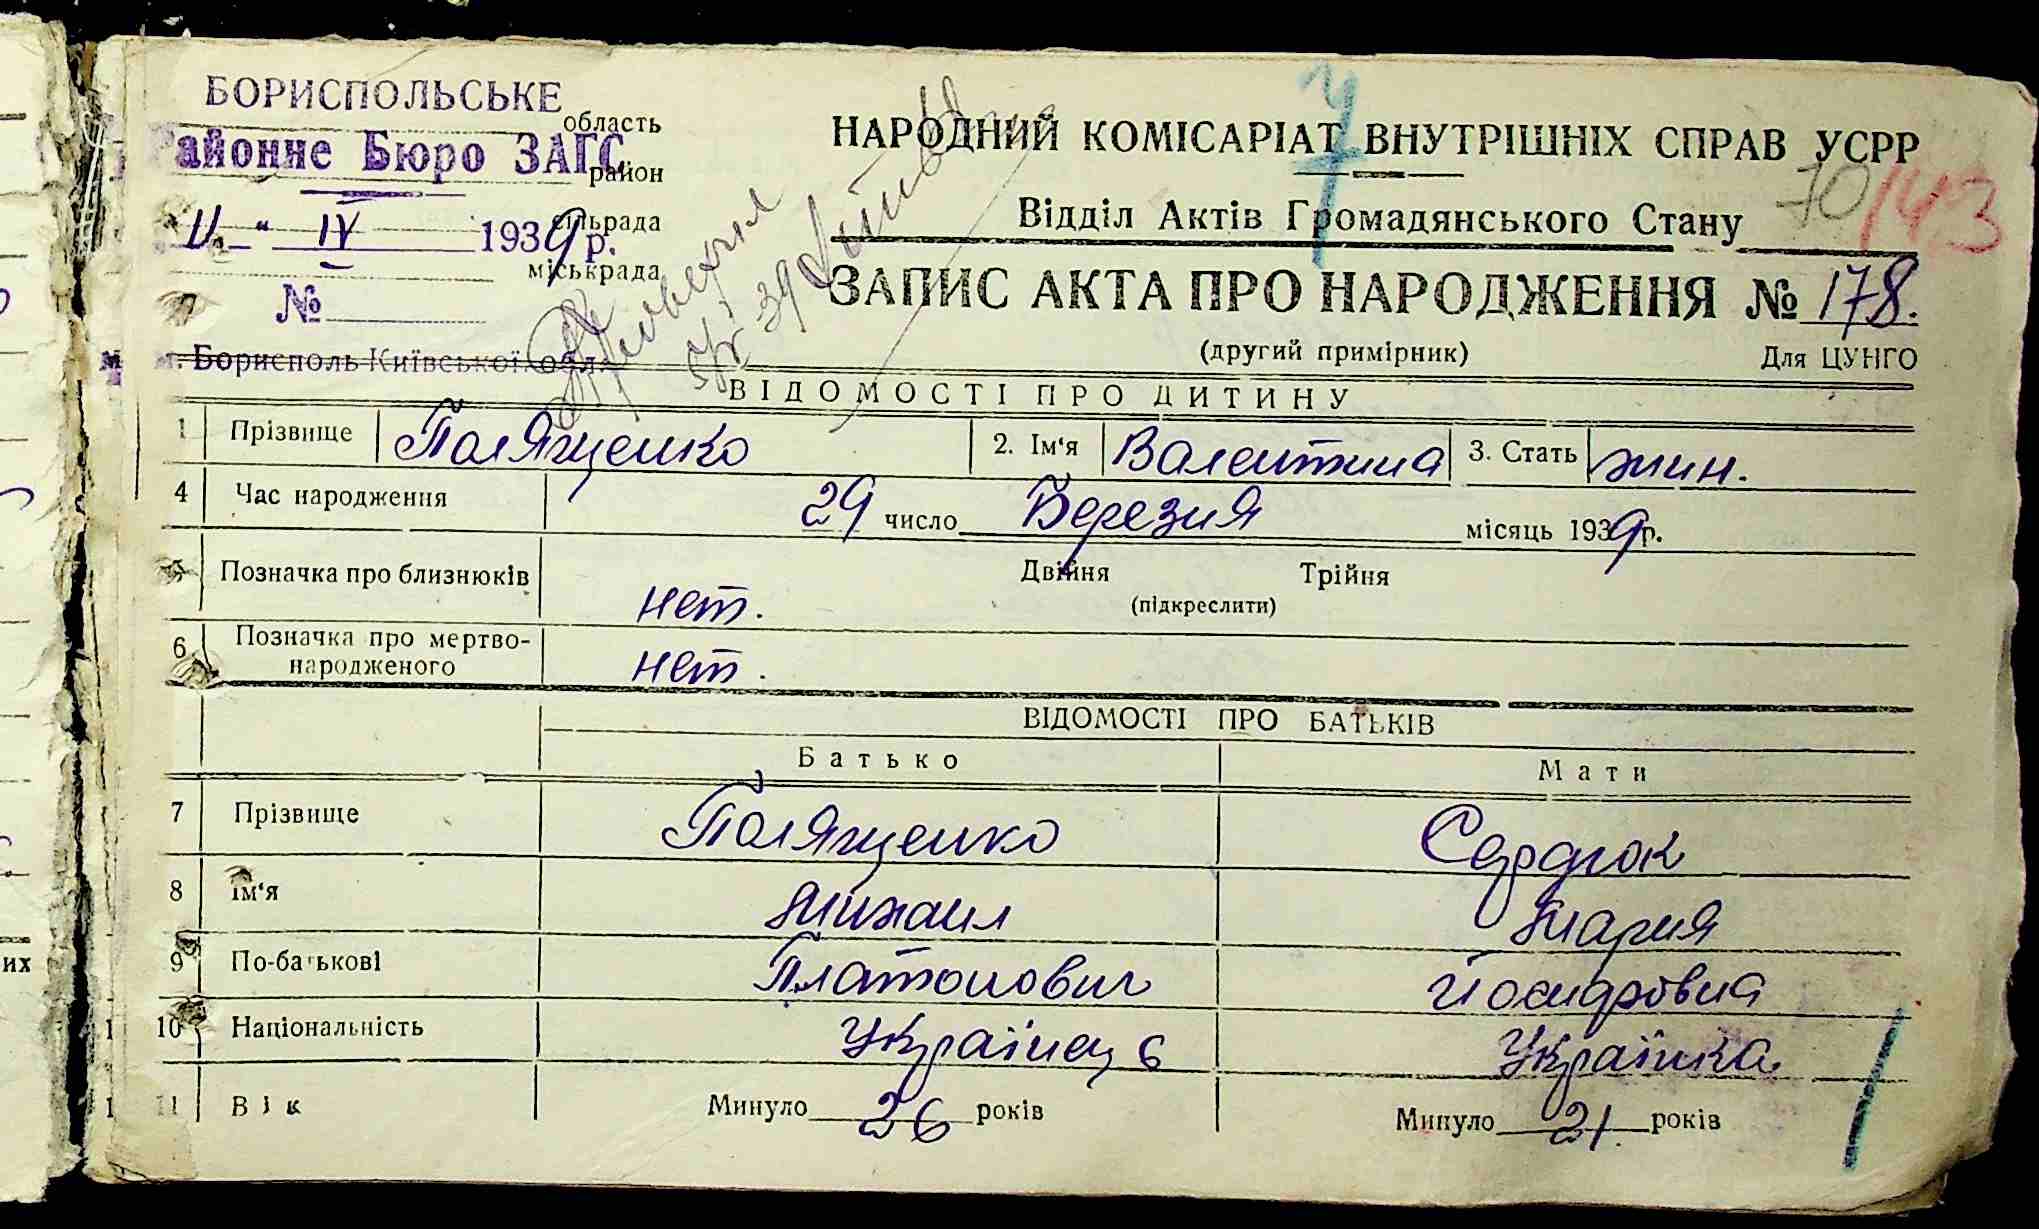 БОРИСПОЛЬСЬКЕ
область
Районне Бюро ЗАГС
район
НАРОДНИЙ КОМІСАРІАТ ВНУТРІШНІХ СПРАВ УСРР
70/143
Відділ Актів Громадянського Стану
сільрада
11 " IV 1939 р.
міськрада
ЗАПИС АКТА ПРО НАРОДЖЕННЯ № 178.
№
(другий примірник) Для ЦУНГО
м. Борисполь Київської обл.
ВІДОМОСТІ ПРО ДИТИНУ
1 Прізвище Полященко 2. Ім'я Валентина 3. Стать жин.
4 Час народження 29 число Березня місяць 1939 р.
5 Позначка про близнюків нет. Двійня Трійня
(підкреслити)
6 Позначка про мертво-
народженого нет.
ВІДОМОСТІ ПРО БАТЬКІВ
Батько Мати
7 Прізвище Полященко Сердюк
8 Ім'я Михаил Мария
9 По-батькові Платонович
10 Національність Українець Українка
11 Вік Минуло 26 років Минуло 21. років
их